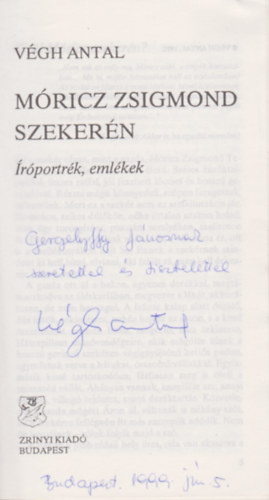 VÉGH ANTAL
MÓRICZ ZSIGMOND
SZEKERÉN
Íróportrék, emlékek
Gergelyffy Jánosnak
szeretettel és tisztelettel
Végh Antal
ZRÍNYI KIADÓ
BUDAPEST
Budapest, 1999. jún. 5.